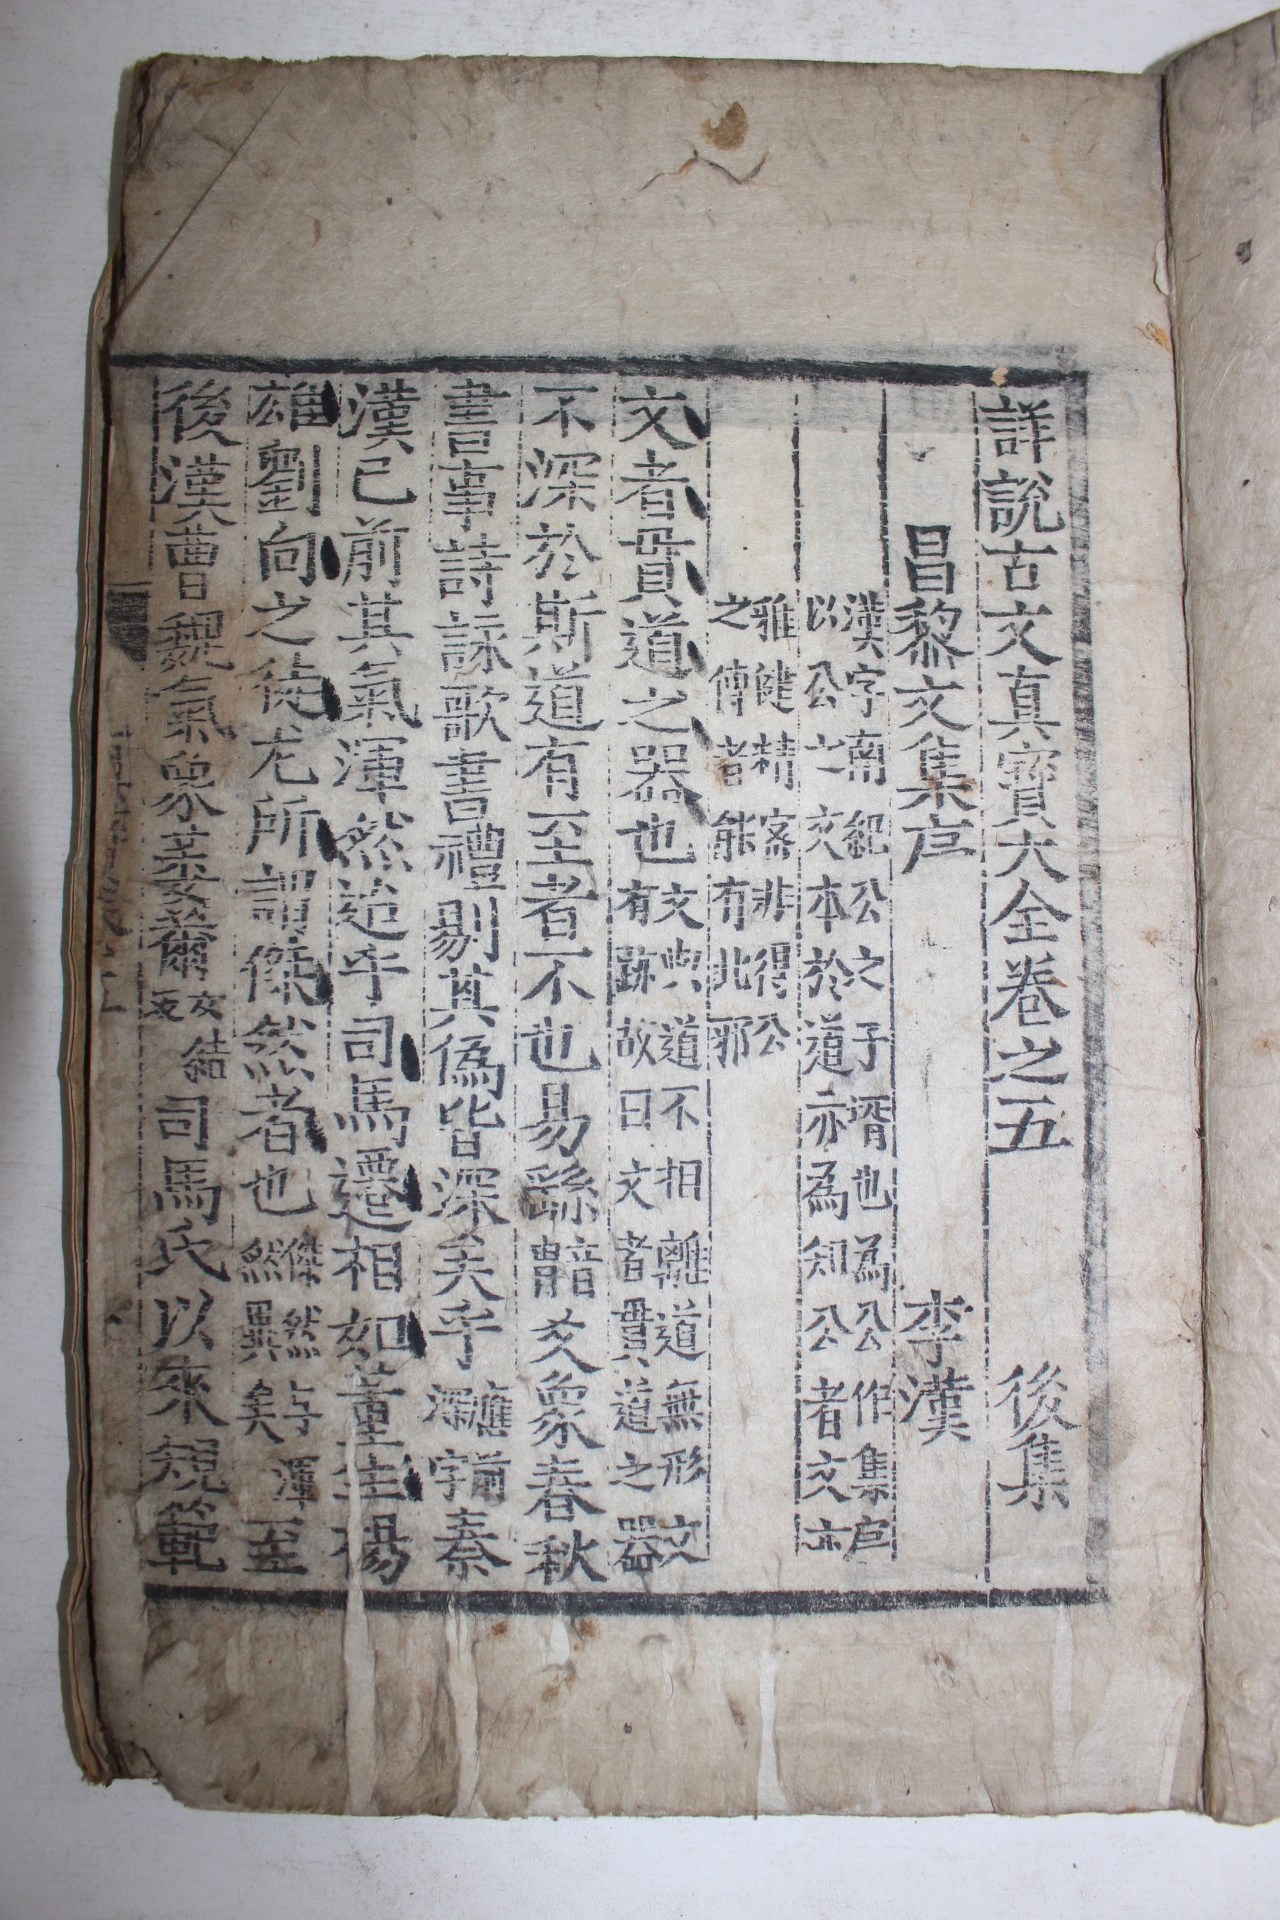 詳說古文真寶大全卷之五 後集
昌黎文集序 李漢
漢字南紀公之子壻也為公作集序
以公之文本於道亦為知公者文亦
雅健精密非得公
之傳者能有此邪
文者貫道之器也
文與道不相離道無形文
有跡故曰文者貫道之器
不深於斯道有至者不也易繇
音冑
爻象春秋
書事詩詠歌書禮剔其偽皆深矣乎
應前
深字
秦
漢已前其氣渾然迨乎司馬遷相如董生揚
雄劉向之徒尤所謂傑然者也
傑然与渾
然異矣
至
後漢曹魏氣象萎薾
女結
反
司馬氏以來規範